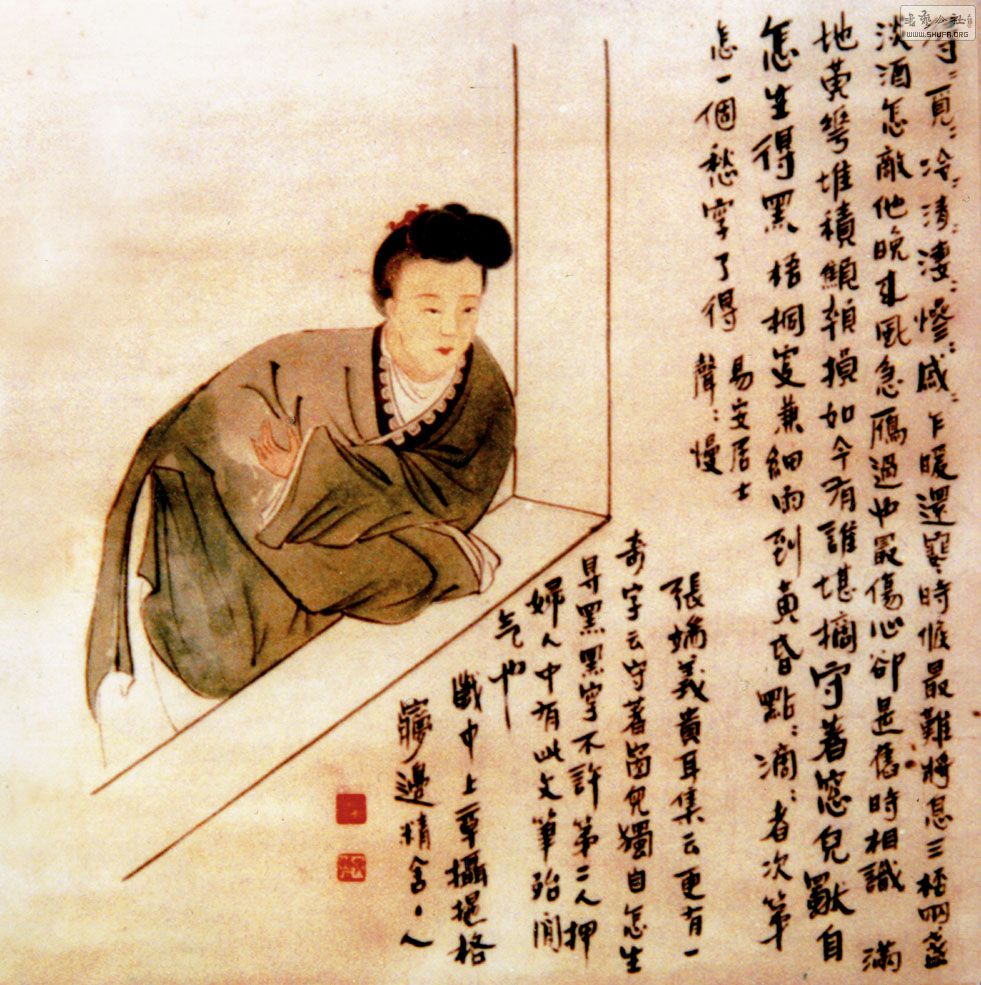 尋〻覓〻冷〻清〻淒〻慘〻戚〻乍暖還寒時候最難將息三桮兩盞
淡酒怎敵他晚來風急鴈過也最傷心卻是舊時相識 滿
地黃花堆積顦顇損如今有誰堪摘守著窓兒獨自
怎生得黑 梧桐更兼細雨到黃昏點〻滴〻者次第
怎一個愁字了得
易安居士
聲〻慢
張端義貴耳集云更有一
奇字云守著窗兒獨自怎生
得黑黑字不許第二人押
婦人中有此文筆殆閒
气也
中上
格
邊精舍
人
书法公社
WWW.SHUFA.ORG